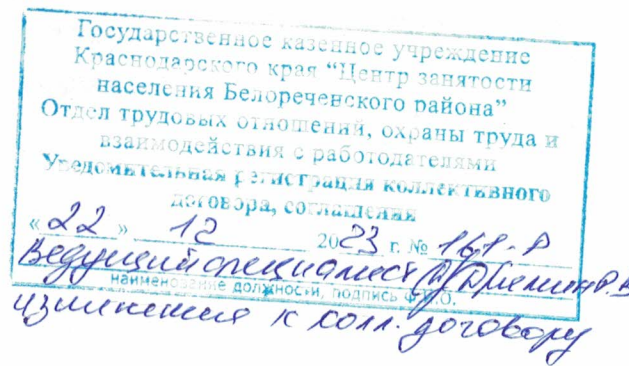 Государственное казенное учреждение
Краснодарского края “Центр занятости
населения Белореченского района”
Отдел трудовых отношений, охраны труда и
взаимодействия с работодателями
Уведомительная регистрация коллективного
договора, соглашения
« 22 » 12 2023 г. № 161-Р
Ведущий специалист
наименование должности, подпись Ф.И.О.
изменения к колл. договору